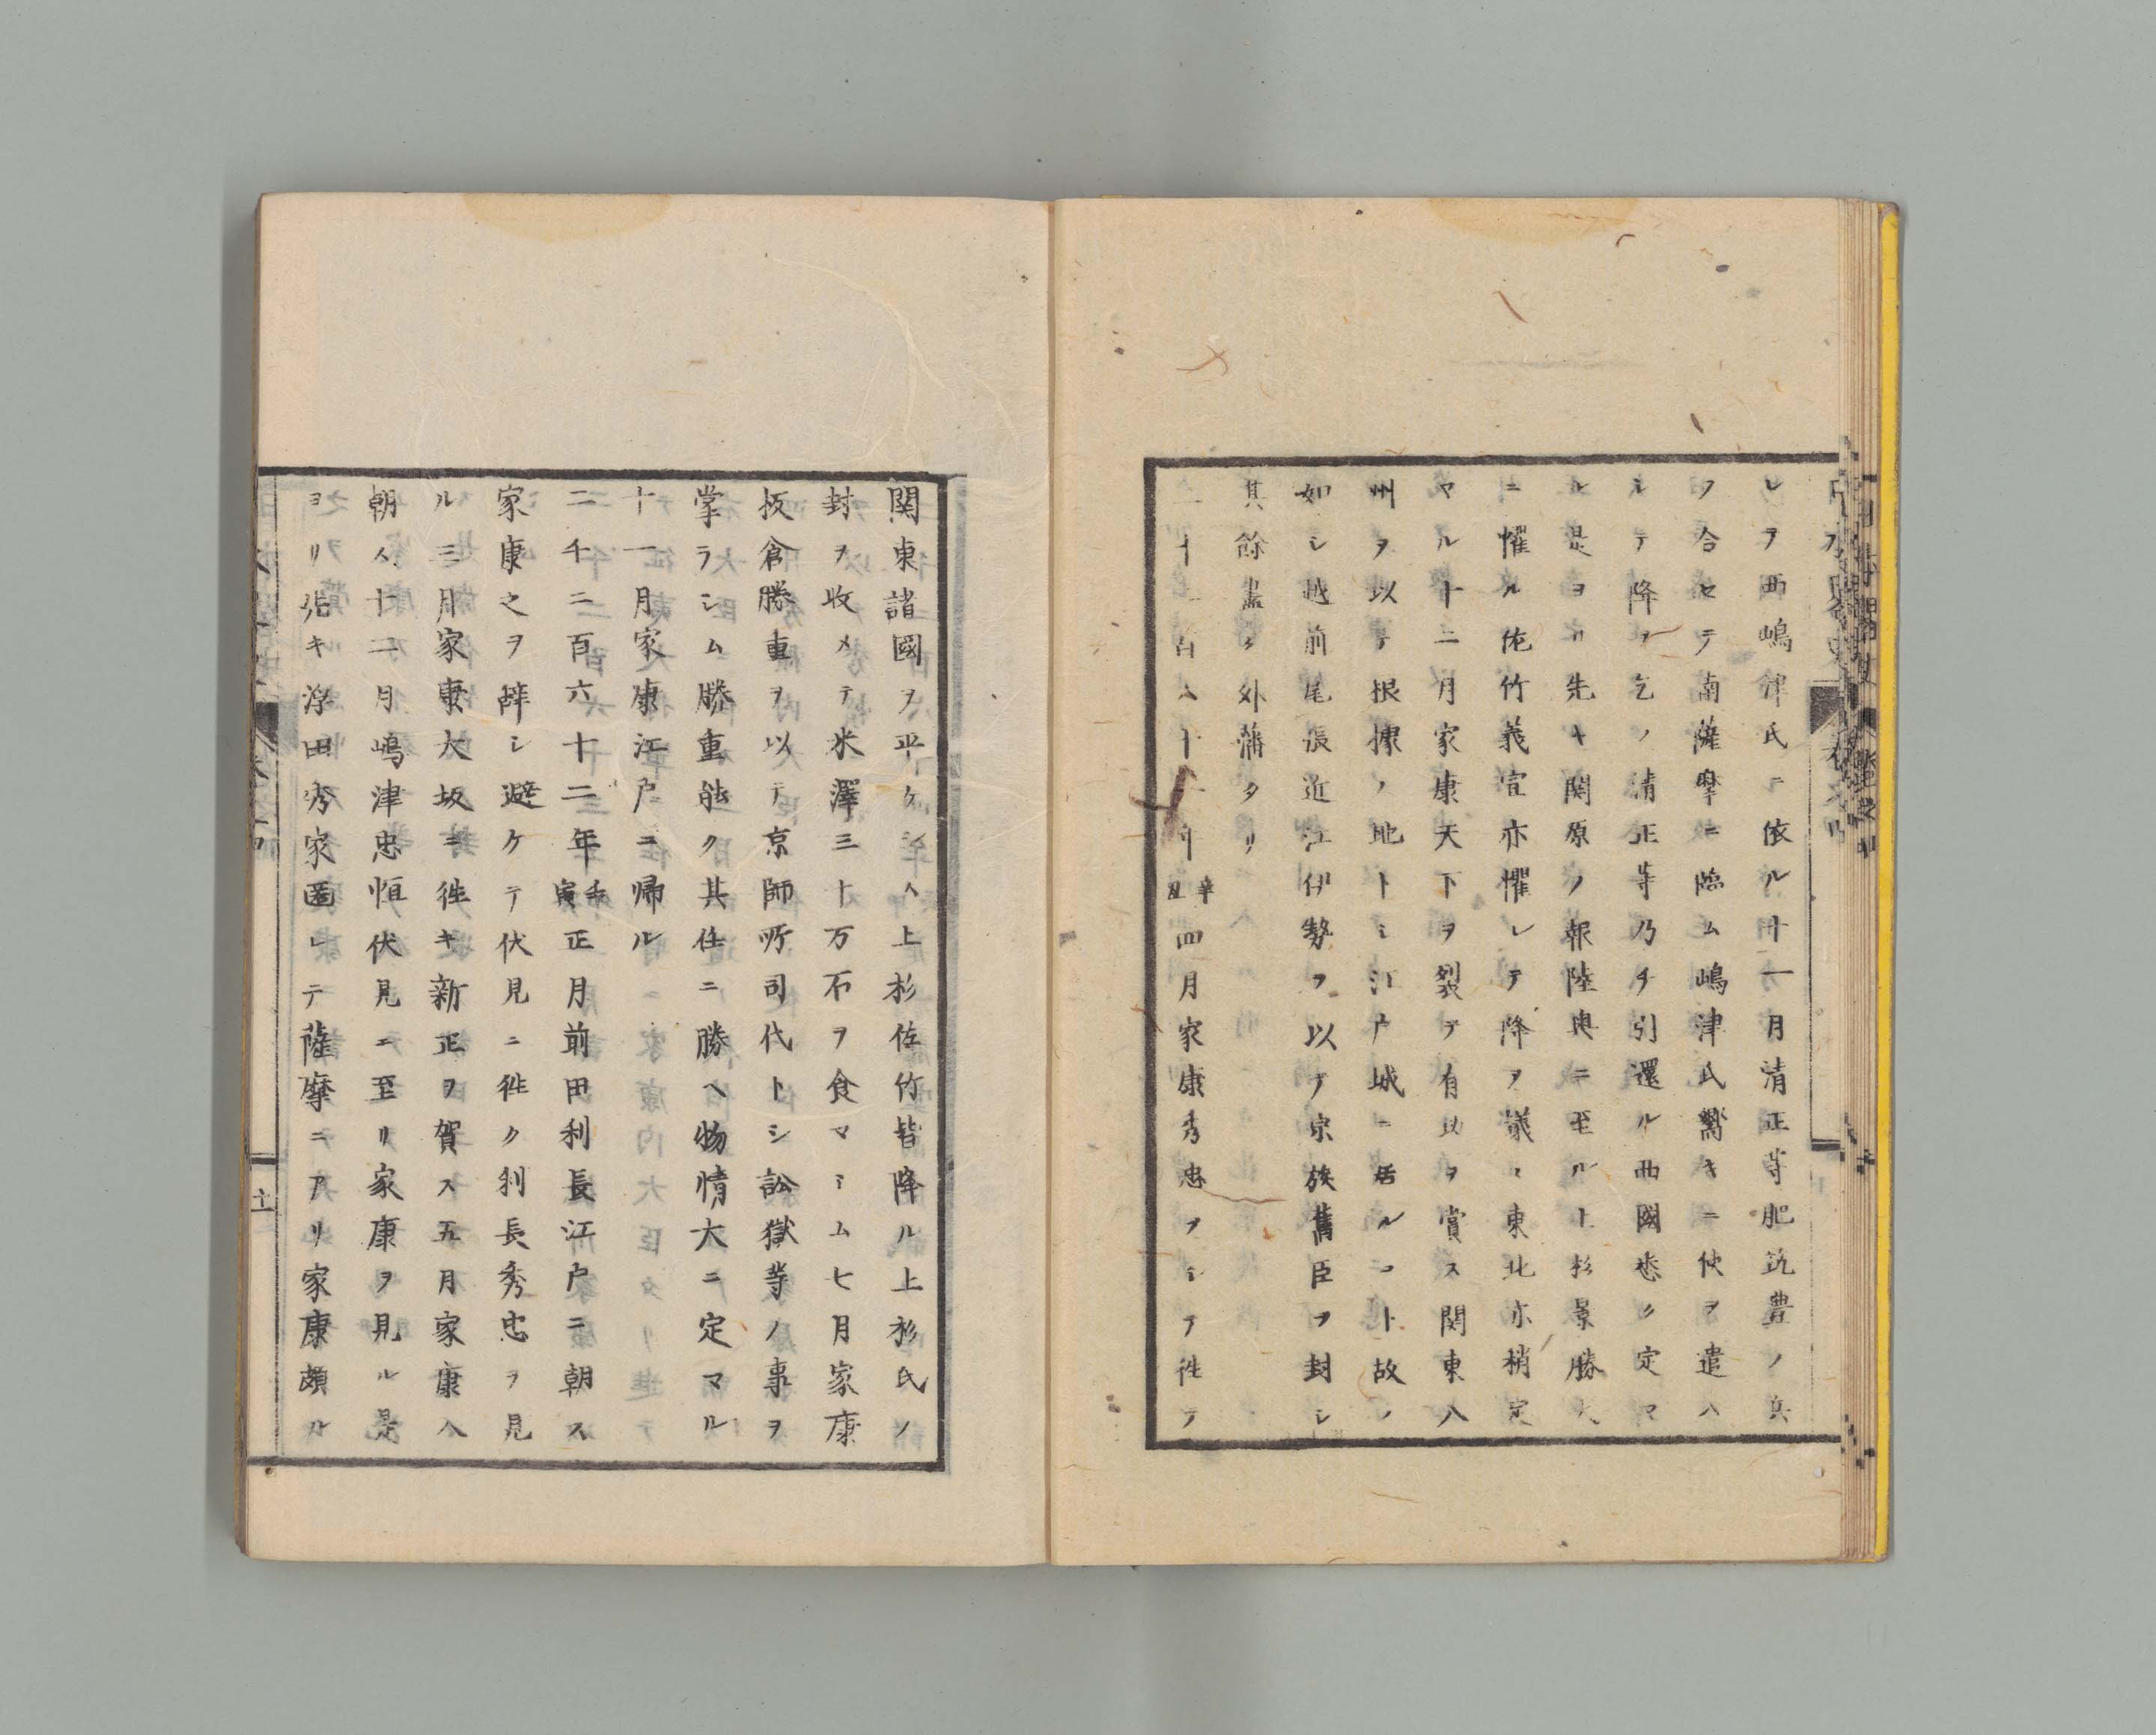 レヲ西嶋津氏ニ依ル十一月清正等肥筑豊ノ兵
ヲ合セテ南薩摩ニ臨ム嶋津氏嚮キニ使ヲ遣ハ
シテ降ヲ乞ノ清正等乃チ引還ル西國悉ク定マ
ル是ヨリ先キ関原ノ報陸奥ニ至ル上杉景勝大
ニ懼ル佐竹義宣亦懼レテ降ヲ議ス東北亦梢定
マル十二月家康天下ヲ裂テ有以ヲ賞ス関東八
州ヲ以テ根據ノ地トシ江戸城ニ居ルコト故ノ
如シ越前尾張近江伊勢ヲ以テ宗族舊臣ヲ封シ
其餘盡ク外藩タリ
辛丑四月家康秀忠ヲシテ徃テ
関東諸國ヲ平ケシム上杉佐竹皆降ル上杉氏ノ
封ヲ收メテ米澤三十万石ヲ食マシム七月家康
板倉勝重ヲ以テ京師所司代トシ訟獄等ノ事ヲ
掌ラシム勝重能ク其任ニ勝ヘ物情大ニ定マル
十一月家康江戸ニ帰ル
二千二百六十二年壬寅正月前田利長江戸ニ朝ス
家康之ヲ辞シ避ケテ伏見ニ徃ク利長秀忠ヲ見
ル三月家康大坂ニ徃キ新正ヲ賀ス五月家康入
朝ス十二月嶋津忠恒伏見ニ至リ家康ヲ見ル是
ヨリ先キ浮田秀家匿レテ薩摩ニアリ家康頗ル
十一